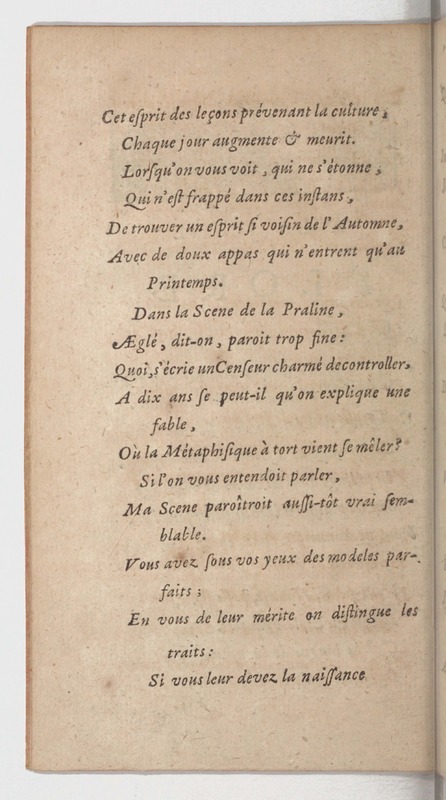 Cet eſprit des leçons prévenant la culture,
Chaque jour augmente & meurit.
Lorſqu'on vous voit, qui ne s'étonne,
Qui n'eſt frappé dans ces inſtans,
De trouver un eſprit ſi voiſin de l'Automne,
Avec de doux appas qui n'entrent qu'au
Printemps.
Dans la Scene de la Praline,
Æglé, dit-on, paroit trop fine:
Quoi, s'écrie un Cenſeur charmé de controller,
A dix ans ſe peut-il qu'on explique une
fable,
Où la Métaphiſique à tort vient ſe mêler?
Si l'on vous entendoit parler,
Ma Scene paroîtroit auſſi-tôt vrai ſem-
blable.
Vous avez ſous vos yeux des modeles par-
faits;
En vous de leur mérite on diſtingue les
traits:
Si vous leur devez la naiſſance